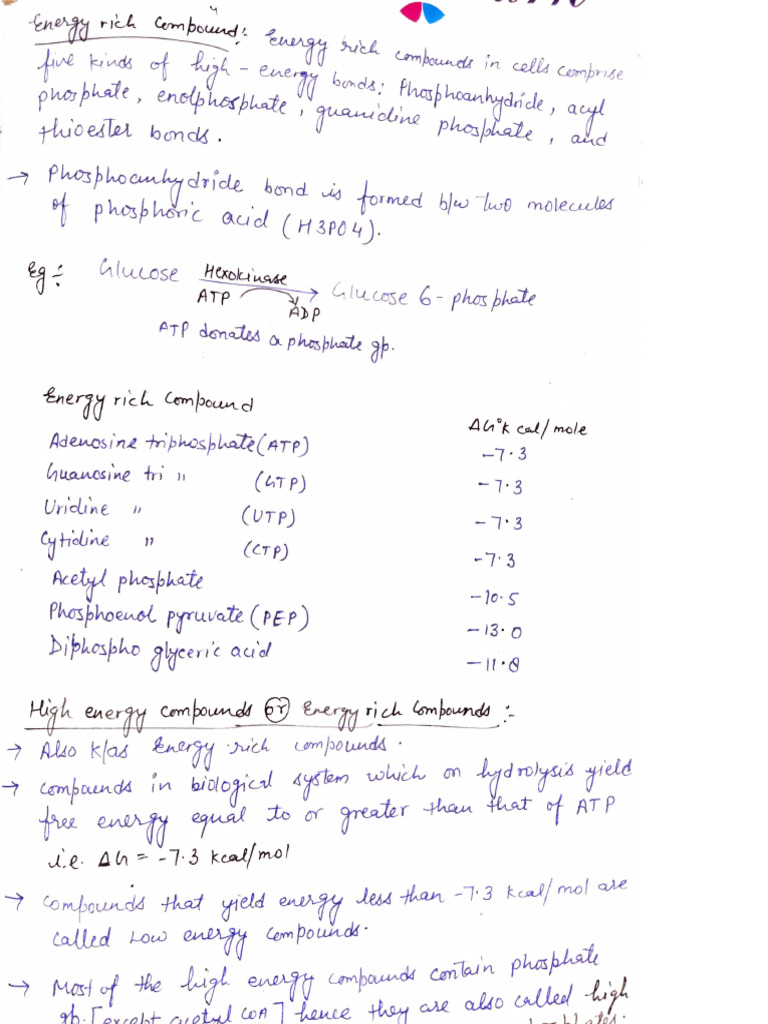 Energy rich Compound: Energy rich compounds in cells comprise
five kinds of high-energy bonds: Phosphoanhydride, acyl
phosphate, enolphosphate, guanidine phosphate, and
thioester bonds.
→ Phosphoanhydride bond is formed b/w two molecules
of phosphoric acid (H3PO4).
Eg:- Glucose Hexokinase → Glucose 6-phosphate
ATP ADP
ATP donates a phosphate gp.
Energy rich Compound ΔG°K cal/mole
Adenosine triphosphate (ATP) -7.3
Guanosine tri " (GTP) -7.3
Uridine " (UTP) -7.3
Cytidine " (CTP) -7.3
Acetyl phosphate -10.5
Phosphoenol pyruvate (PEP) -13.0
Diphospho glyceric acid -11.8
High energy compounds or Energy rich Compounds :-
→ Also k/as Energy rich compounds.
→ compounds in biological system which on hydrolysis yield
free energy equal to or greater than that of ATP
i.e. ΔG = -7.3 kcal/mol
→ compounds that yield energy less than -7.3 kcal/mol are
called Low energy compounds.
→ Most of the high energy compounds contain phosphate
gp. [except acetyl COA] hence they are also called high